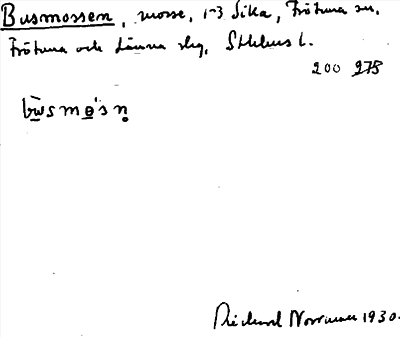 Busmossen, mosse, 1-3 Sika, Frötuna sn,
Frötuna och Länna slg, Sthlms l.
200 275
bùsmo'sn
Richard Norrman 1930.